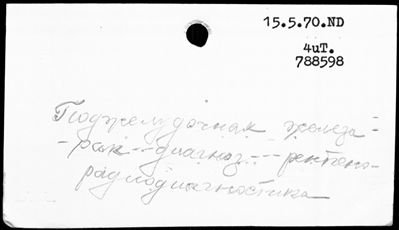 15.5.70.ND
4uT.
788598
Поджелудочная железа -
- рак -- диагноз -- рентгено-
радиодиагностика